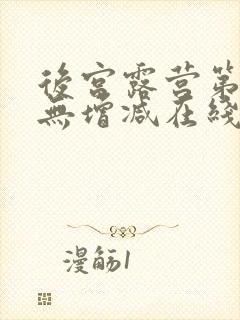 後宮露营第
無增减在綫
漫觞1